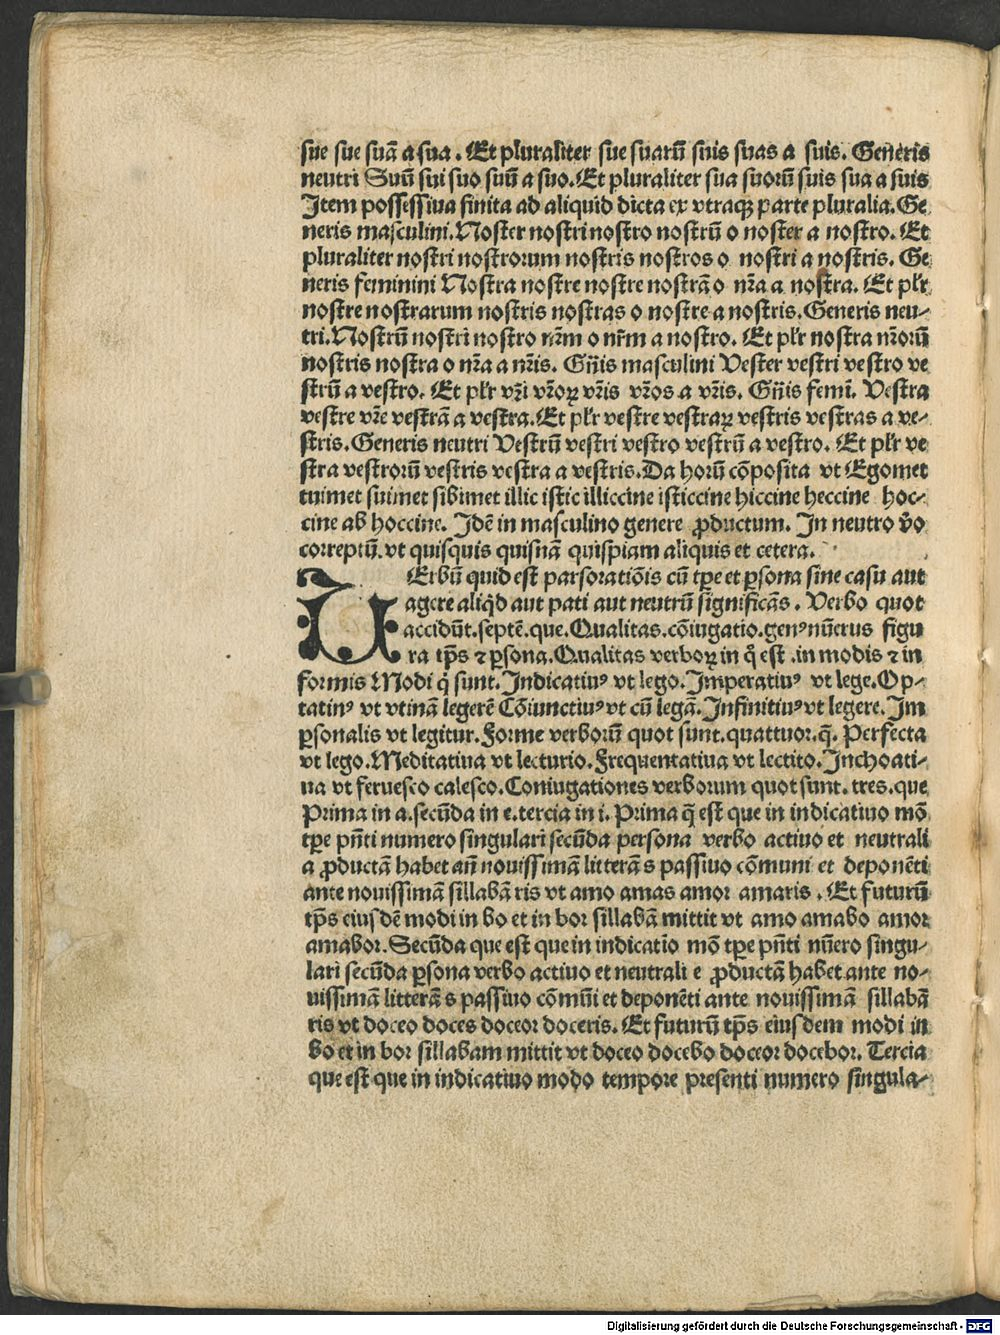 sue sue suā a sua. Et pluraliter sue suarū suis suas a suis. Generis
neutri Suū sui suo suū a suo. Et pluraliter sua suorū suis sua a suis
Item possessiua finita ad aliquid dicta ex vtraqꝫ parte pluralia. Ge
neris masculini. Noster nostri nostro nostrū o noster a nostro. Et
pluraliter nostri nostrorum nostris nostros o nostri a nostris. Ge
neris feminini Nostra nostre nostre nostrā o nr̄a a nostra. Et pl'r
nostre nostrarum nostris nostras o nostre a nostris. Generis neu-
tri. Nostrū nostri nostro nr̄m o nr̄m a nostro. Et pl'r nostra nr̄orū
nostris nostra o nr̄a a nr̄is. Gn̄is masculini Vester vestri vestro ve
strū a vestro. Et pl'r vr̄i vr̄oꝝ vr̄is vr̄os a vr̄is. Gn̄is femī. Vestra
vestre vr̄e vestrā a vestra. Et pl'r vestre vestraꝝ vestris vestras a ve-
stris. Generis neutri Vestrū vestri vestro vestrū a vestro. Et pl'r ve
stra vestrorū vestris vestra a vestris. Da horū cōposita vt Egomet
tuimet suimet sibimet illic istic illiccine isticcine hiccine heccine hoc-
cine ab hoccine. Idē in masculino genere ꝓductum. In neutro v̊o
correptū. vt quisquis quisnā quispiam aliquis et cetera.
VErbū quid est pars orationis cū tꝑe et ꝑsona sine casu aut
agere aliq̇d aut pati aut neutrū significās. Verbo quot
accidūt. septē. que. Qualitas. cōiugatio. genꝰ nūerus figu
ra tꝑs ⁊ ꝑsona. Qualitas verboꝝ in q̊ est. in modis ⁊ in
formis Modi q̇ sunt. Indicatiuꝰ vt lego. Imperatiuꝰ vt lege. Op-
tatiuꝰ vt vtinā legerē Cōiunctiuꝰ vt cū legā. Infinitiuꝰ vt legere. Im
ꝑsonalis vt legitur. Forme verborū quot sunt. quattuor. q̄. Perfecta
vt lego. Meditatiua vt lecturio. Frequentatiua vt lectito. Inchoati-
ua vt feruesco calesco. Coniugationes verborum quot sunt. tres. que
Prima in a. secūda in e. tercia in i. Prima q̄ est que in indicatiuo mō
tꝑe pn̄ti numero singulari secūda persona verbo actiuo et neutrali
a ꝓductā habet añ nouissimā litterā s passiuo cōmuni et deponēti
ante nouissimā sillabā ris vt amo amas amor amaris. Et futurū
tꝑs eiusdē modi in bo et in bor sillabā mittit vt amo amabo amor
amabor. Secūda que est que in indicatio mō tꝑe pn̄ti nūero singu-
lari secūda ꝑsona verbo actiuo et neutrali e ꝓductā habet ante no-
uissimā litterā s passiuo cōmūi et deponēti ante nouissimā sillabā
ris vt doceo doces doceor doceris. Et futurū tꝑs eiusdem modi in
bo et in bor sillabam mittit vt doceo docebo doceor docebor. Tercia
que est que in indicatiuo modo tempore presenti numero singula-
Digitalisierung gefördert durch die Deutsche Forschungsgemeinschaft - DFG